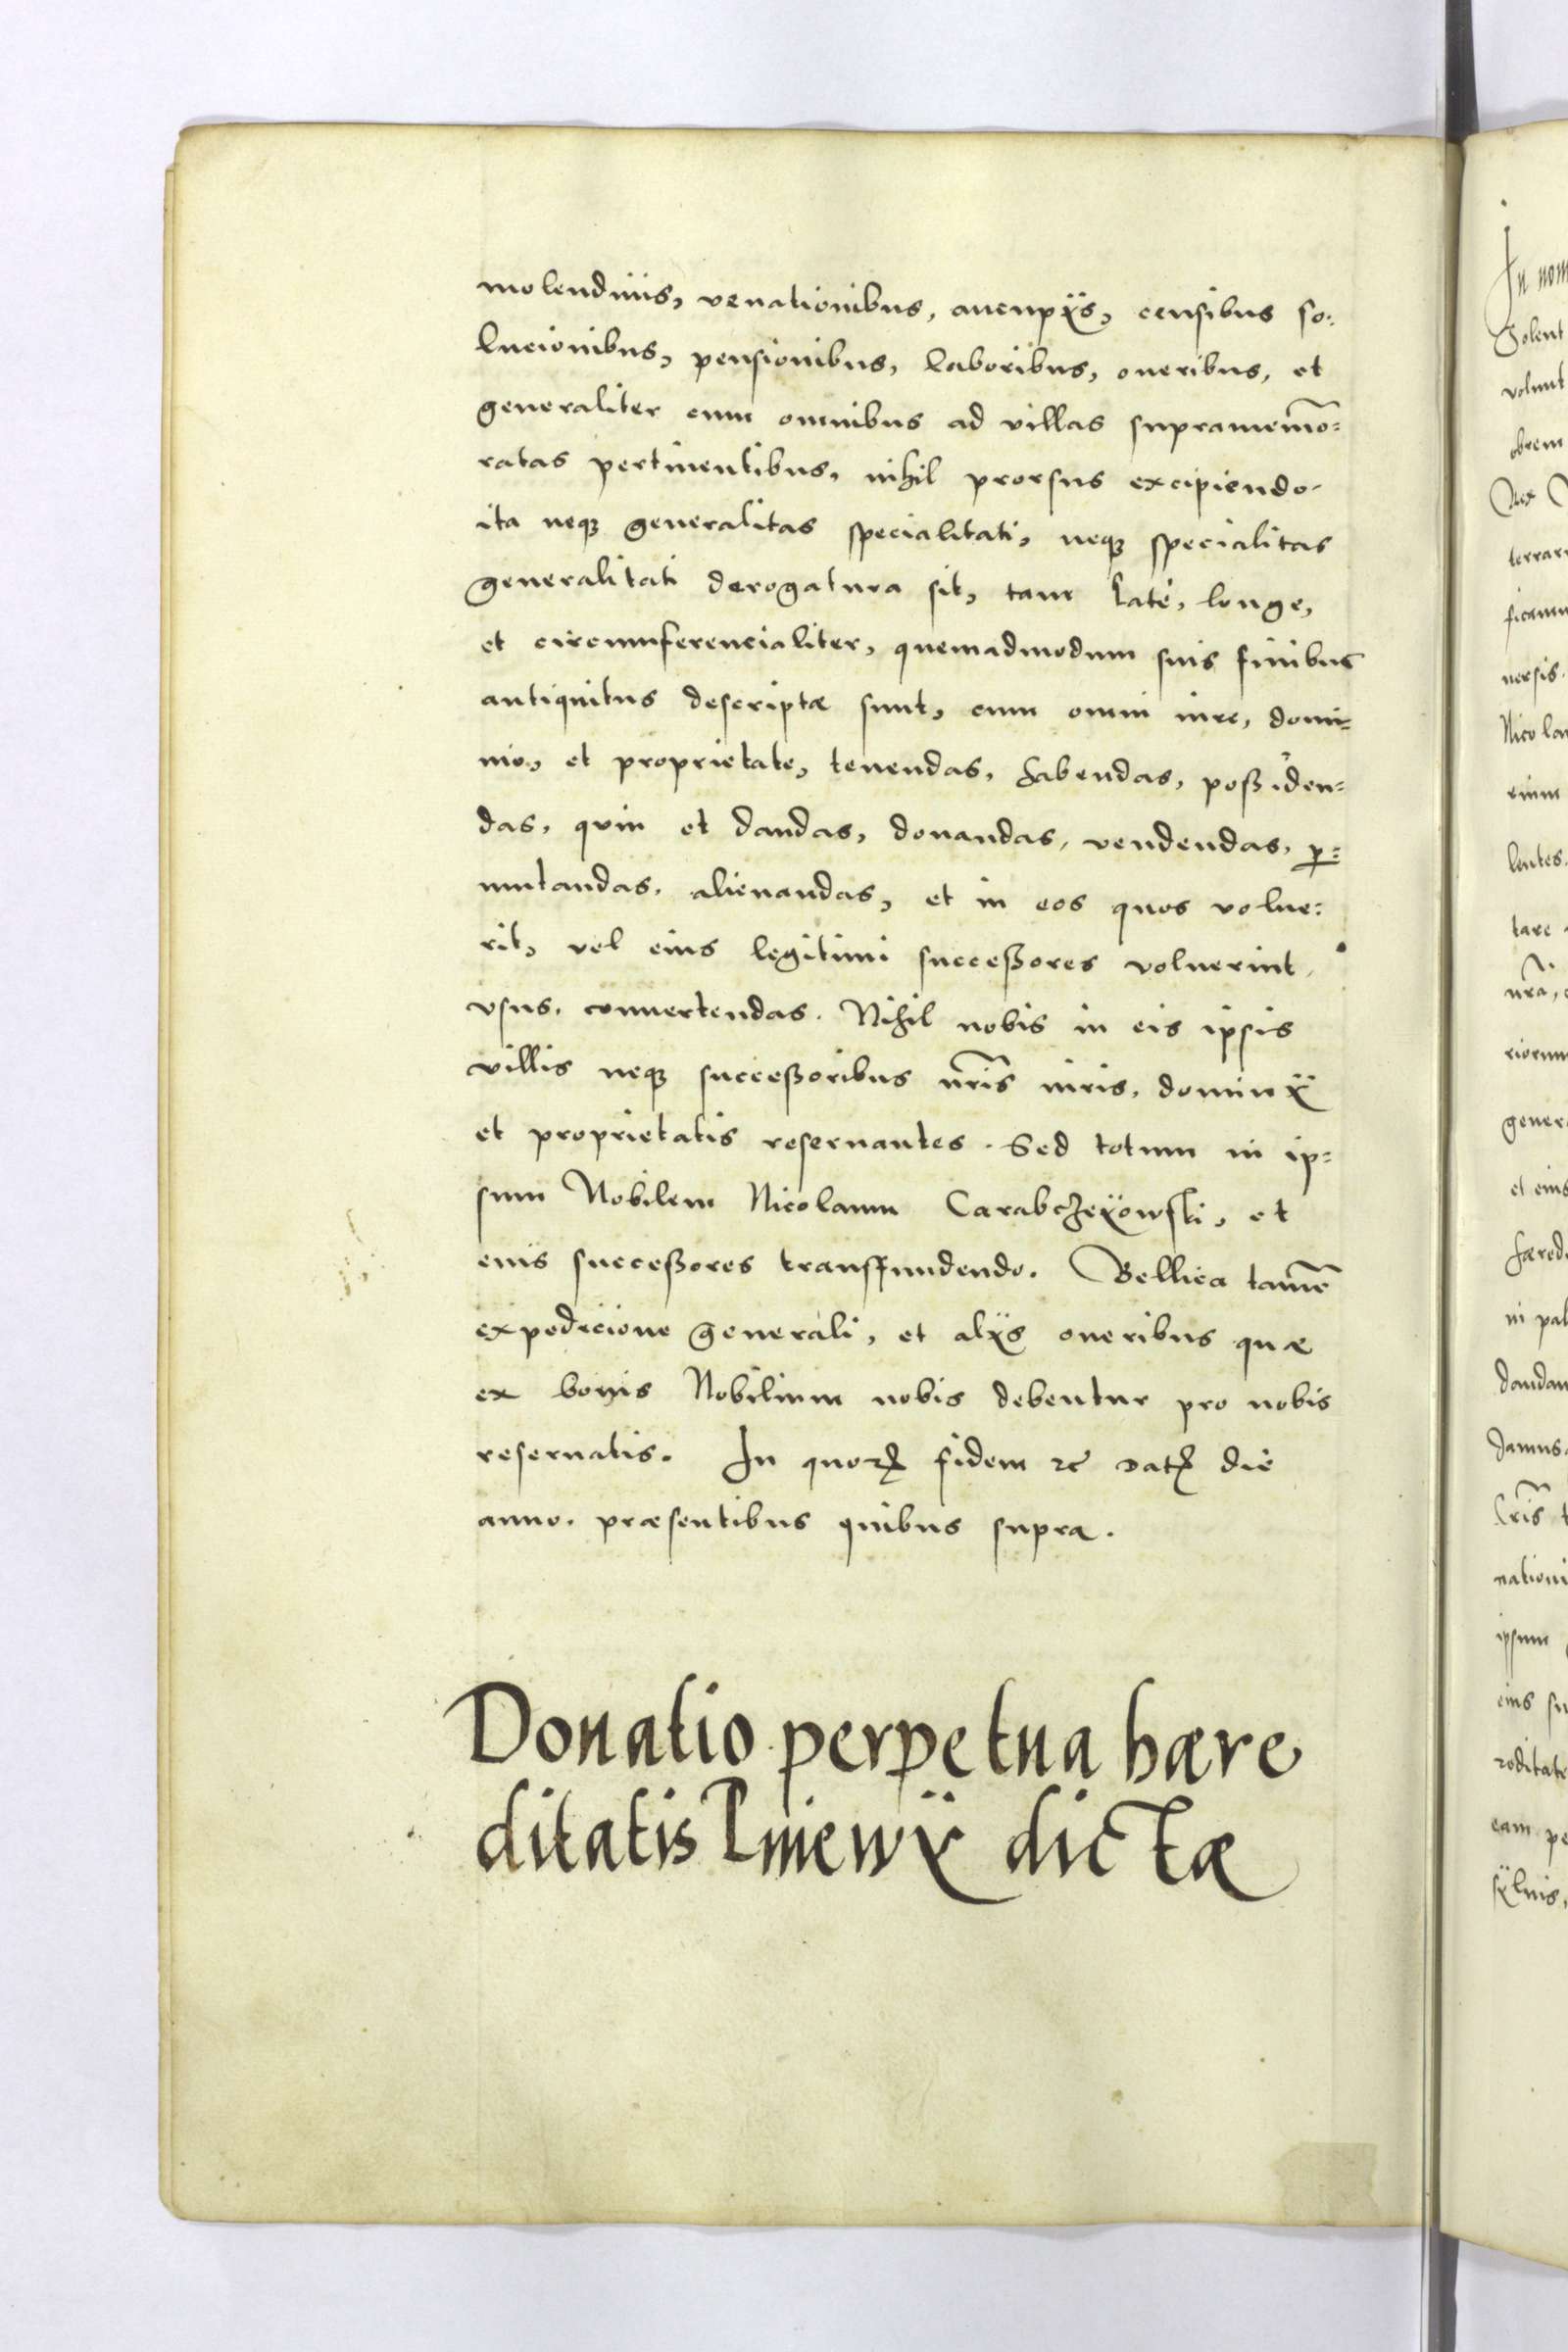 molendinis, venationibus, aucupÿs, censibus so:
lucionibus, pensionibus, laboribus, oneribus, et
generaliter cum omnibus ad villas supramemo=
ratas pertinentibus, nihil prorsus excipiendo.
ita neqꝫ generalitas specialitati, neqꝫ specialitas
generalitati derogatura sit, tam late, longe,
et circumferencialiter, quemadmodum suis finibus
antiquitus descriptæ sunt, cum omni iure, domi=
nio, et proprietate, tenendas, habendas, poßiden=
das, quin et dandas, donandas, vendendas, ꝑ=
mutandas, alienandas, et in eos quos volue:
rit, vel eius legitimi succeßores voluerint,
vsus, conuertendas. Nihil nobis in eis ipsis
villis neqꝫ succeßoribus nr̃is iuris, dominÿ
et proprietatis reseruantes. Sed totum in ip=
sum Nobilem Nicolaum Carabczeÿowski, et
eius succeßores transfundendo. Bellica tamẽ
expedicione generali, et alÿs oneribus quæ
ex bonis Nobilium nobis debentur pro nobis
reseruatis. In quoꝝ fidem ꝛc datꝭ die
anno. præsentibus quibus supra.
Donatio perpetua hære
ditatis Imiewÿ dictæ
In nom
Solent
volunt
obrem
Rex
terrar
ficamu
uersis.
Nicola
lentes.
tare
nr̃a,
riorum
genera
et eius
hæredi
in pal
dandam
damus
lr̃is t
nationi
ipsum
eius su
reditate
eam pe
sÿluis,